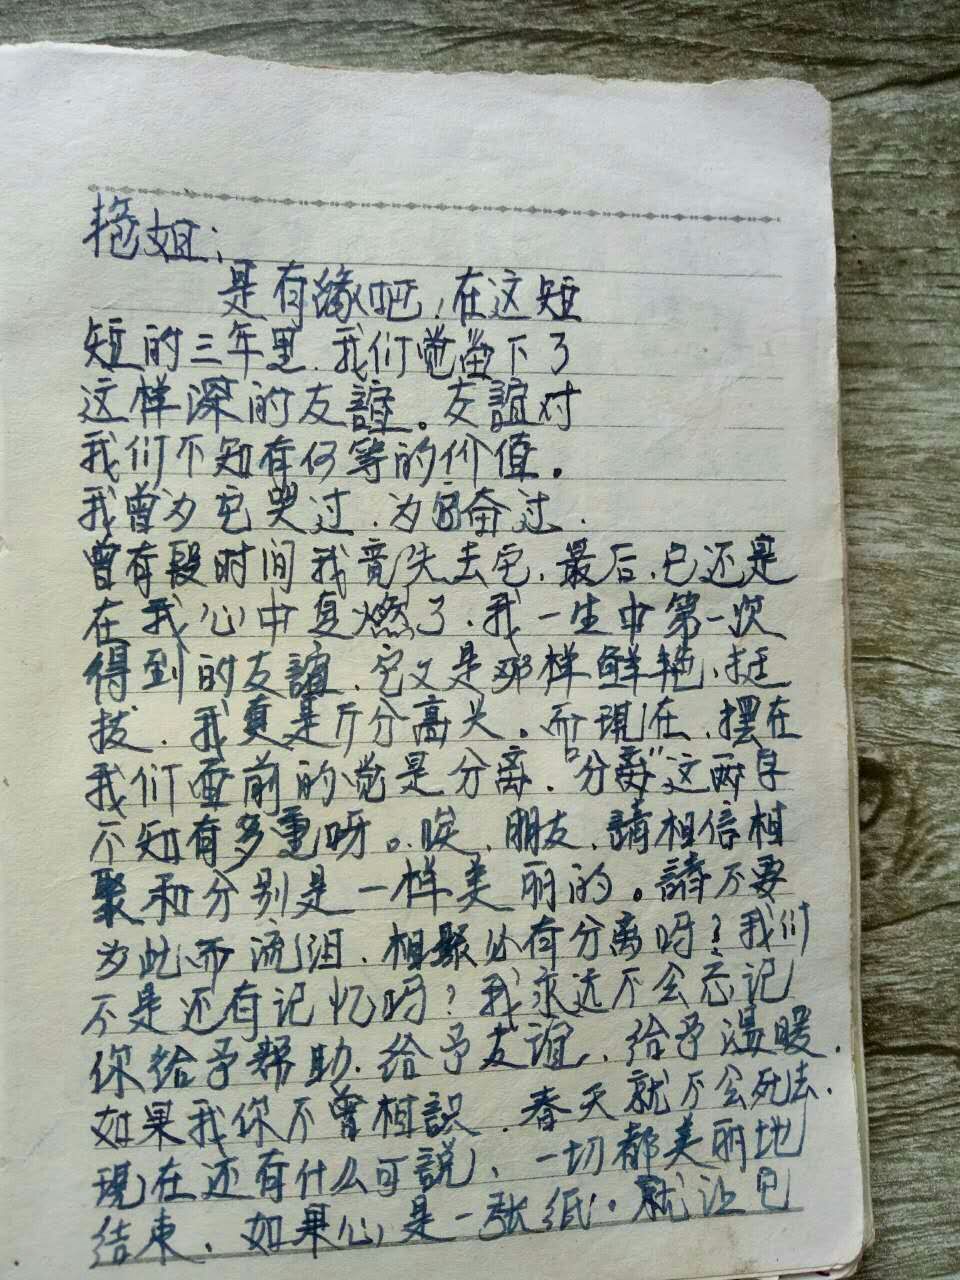 艳姐：
是有緣吧，在这短
短的三年里，我们觉留下了
这样深的友誼。友誼对
我们不知有何等的价值。
我曾为它哭过，为它奋过．
曾有段时间我竟失去它，最后，它还是
在我心中复燃了．我一生中第一次
得到的友誼，它又是那样鲜艳，挺
拔，我真是万分高兴。而現在，摆在
我们面前的觉是分离，“分离”这两字
不知有多重呀。唉，朋友，請相信相
聚和分别是一样美丽的。請不要
为此而流泪，相聚必有分离吗？我们
不是还有记忆吗？我永远不会忘记
你给予帮助，给予友谊，给予温暖．
如果我你不曾相識，春天就不会死去．
現在还有什么可說，一切都美丽地
结束，如果心是一张纸。就让它